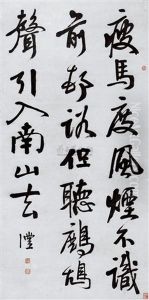 瘦馬度風煙不識
前邨路但聽鷓鴣
聲引入南山去